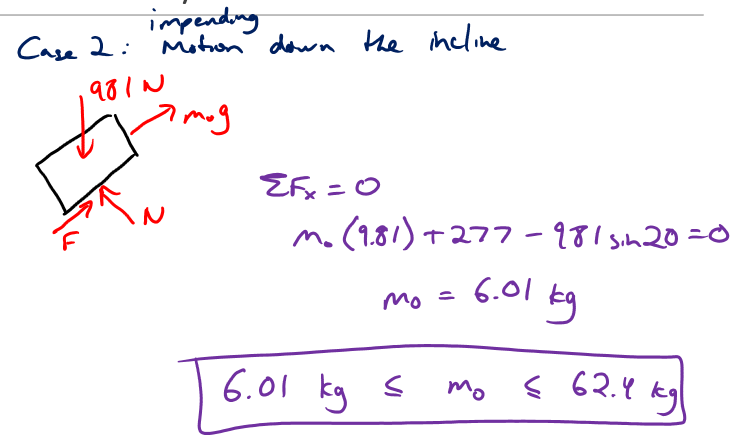 impending
Case 2: Motion down the incline
981 N
m₀g
F
N
ΣFx = 0
m₀(9.81) + 277 - 981 sin20 = 0
m₀ = 6.01 kg
6.01 kg ≤ m₀ ≤ 62.4 kg